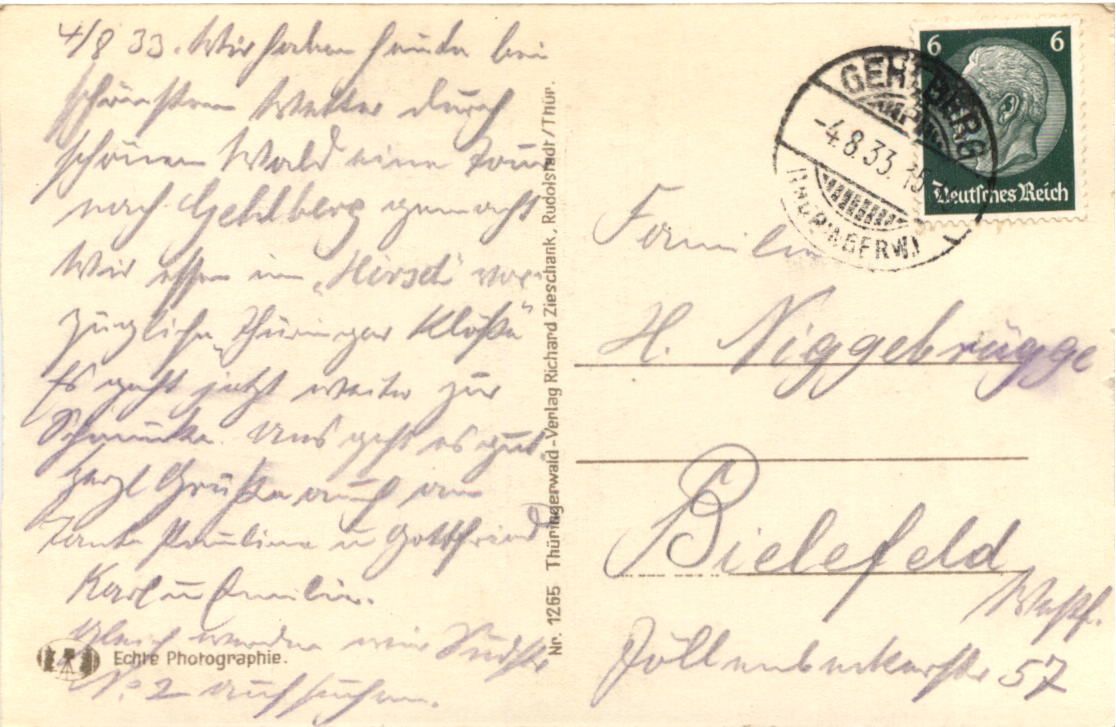 4/8 33. Wir haben heute bei
schönstem Wetter durch
schönen Wald eine Tour
nach Gehlberg gemacht
Wir essen im „Hirsch" vor-
zügliche „Thüringer Klöße"
Es geht jetzt weiter zur
Schmücke. Uns geht es gut.
Herzl Grüße auch an
Tante Pauline u Gottfried
Karl u Emilie.
Gleich werden wir
No. 2 aufsuchen.
Echte Photographie.
Nr. 1265 Thüringerwald-Verlag Richard Zieschank, Rudolstadt/Thür.
6 6
Deutsches Reich
GEHLBERG
-4.8.33.15
THÜRINGERW.
Familie
H. Niggebrügge
Bielefeld
Westf.
Jöllenbeckerstr 57